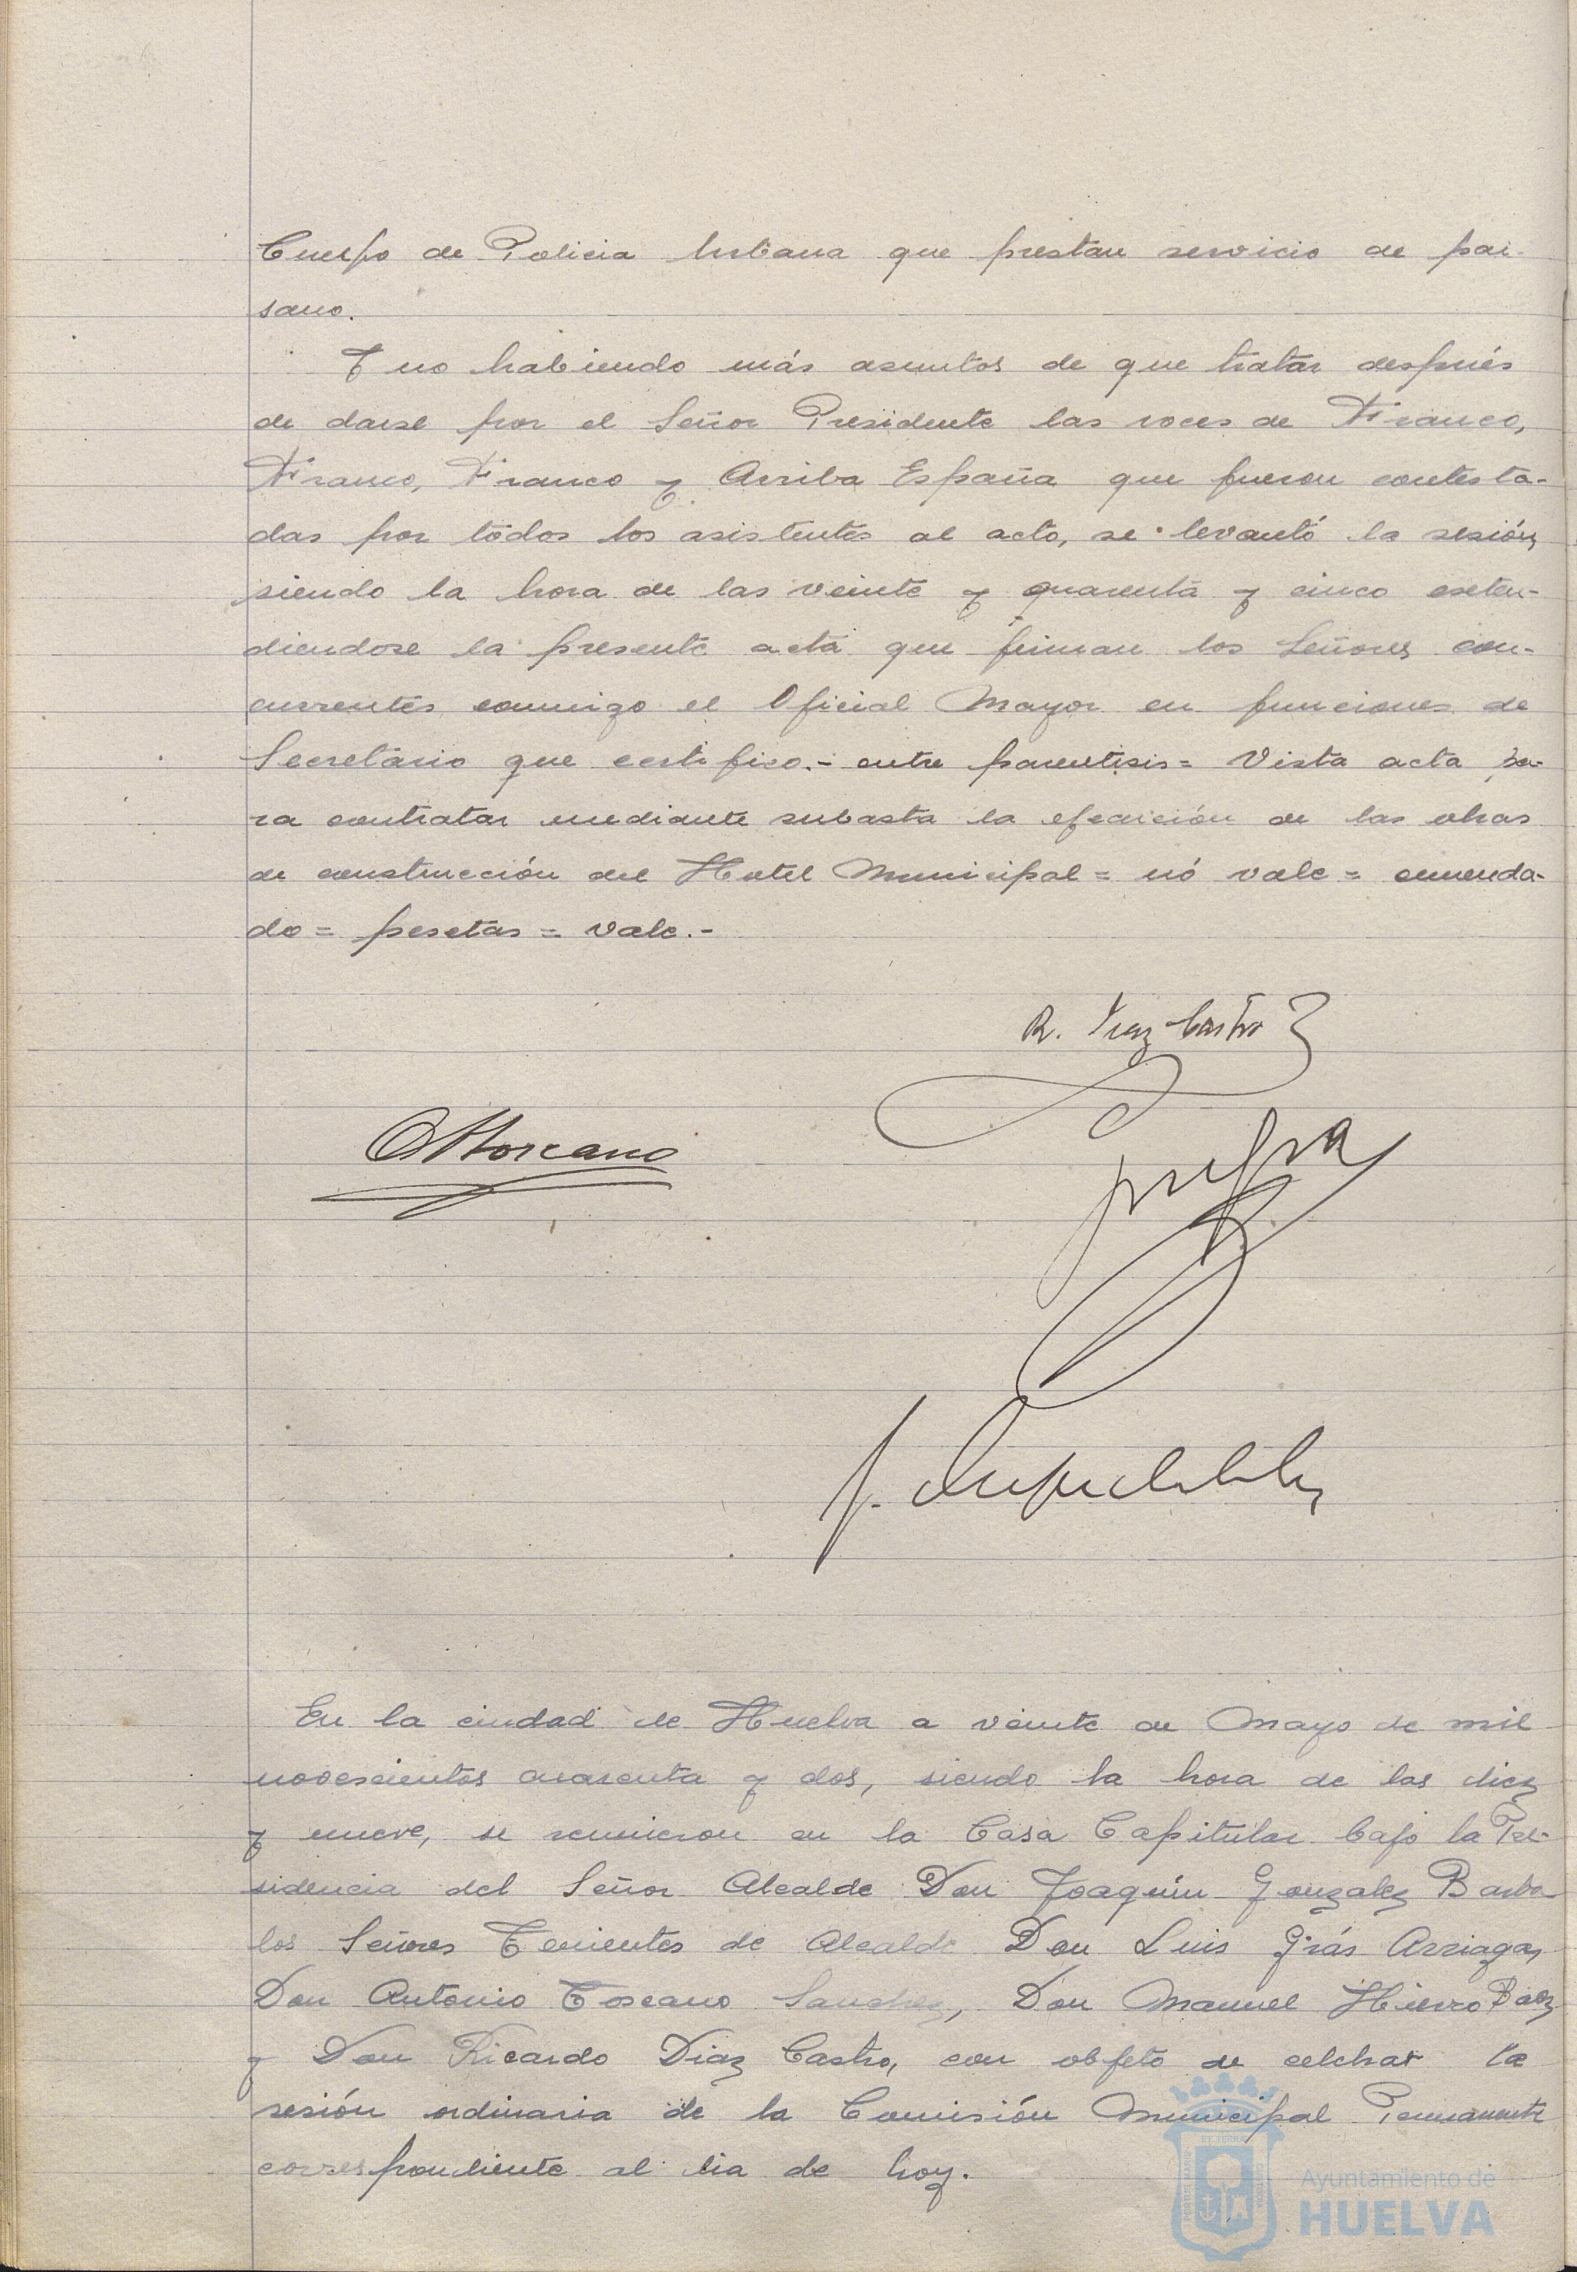 Cuerpo de Policia Urbana que prestan servicio de pai-
sano.
Y no habiendo más asuntos de que tratar después
de darse por el Señor Presidente las voces de Franco,
Franco, Franco y Arriba España que fueron contesta-
das por todos los asistentes al acto, se levantó la sesión,
siendo la hora de las veinte y quarenta y cinco exten-
diendose la presente acta que firman los Señores con-
currentes conmigo el Oficial Mayor en funciones de
Secretario que certifico.- entre parentisis = Vista acta pa-
ra contratar mediante subasta la ejecución de las obras
de construcción del Hotel Municipal = nó vale = enmenda-
do = pesetas = vale.-
R. Diaz Castro
A Toscano
En la ciudad de Huelva a veinte de Mayo de mil
novescientos cuarenta y dos, siendo la hora de las diez
y nueve, se reunieron en la Casa Capitular bajo la Pre-
sidencia del Señor Alcalde Don Joaquín Gonzalez Barba
los Señores Tenientes de Alcalde Don Luis Grás Arriaga,
Don Antonio Toscano Sanchez, Don Manuel Hierro Baez
y Don Ricardo Diaz Castro, con objeto de celebrar la
sesión ordinaria de la Comisión Municipal Permanente
correspondiente al dia de hoy.
Ayuntamiento de
HUELVA